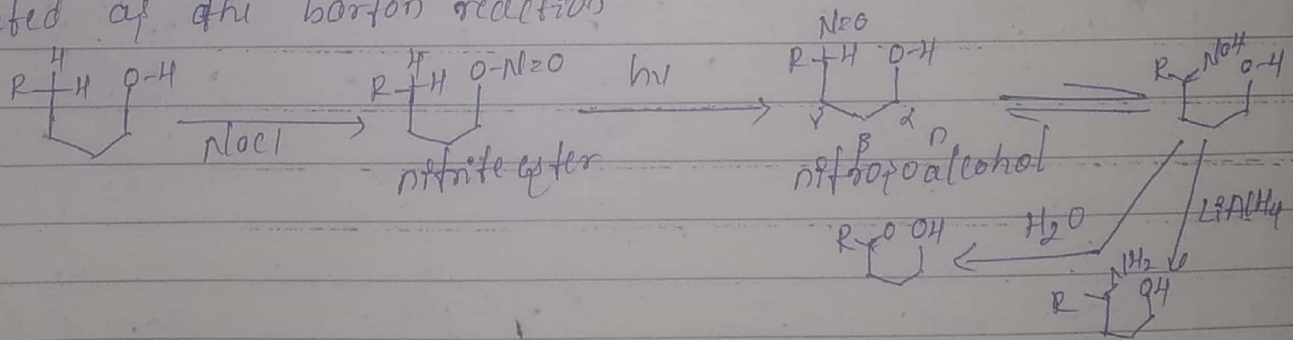 ted as the barton reaction
H
R H O-H
NOCl
H
R H O-N=O
nitrite ester
hν
N=O
R H O-H
γ β α
nitrosoalcohol
R NOH O-H
H2O
R O OH
LiAlH4
NH2
R OH